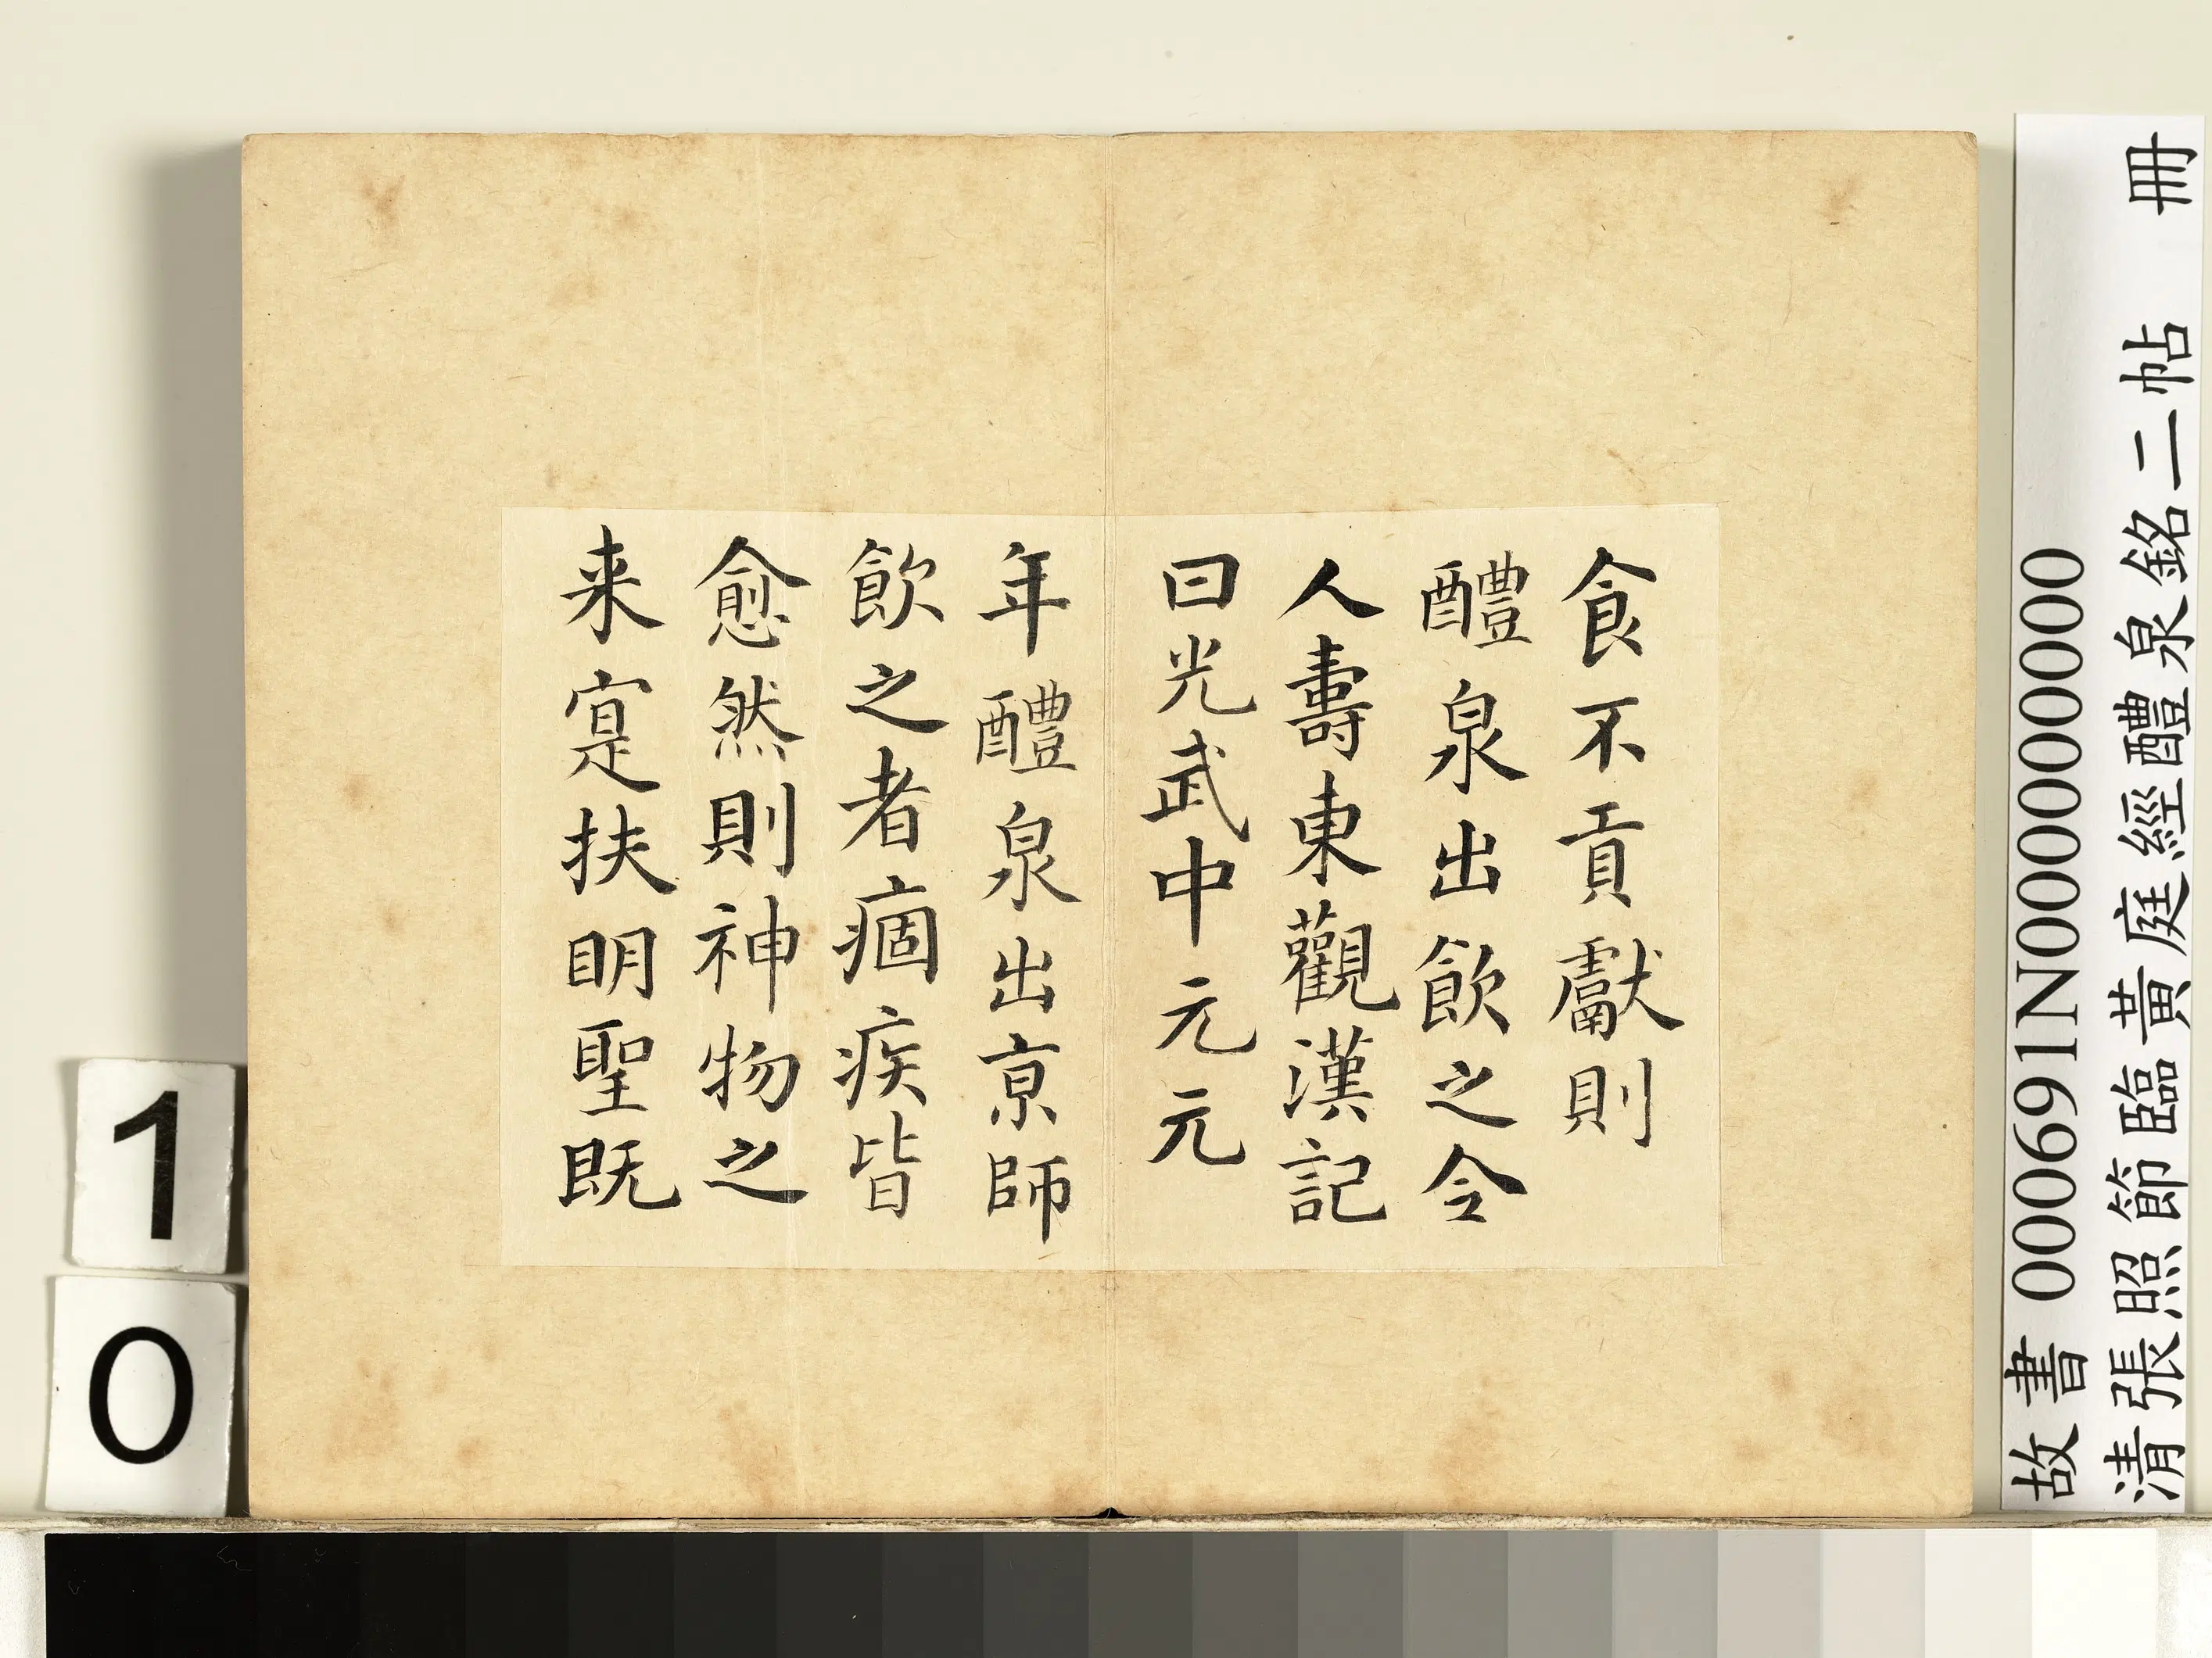 食不貢獻則
醴泉出飲之令
人壽東觀漢記
曰光武中元元
年醴泉出京師
飲之者痼疾皆
愈然則神物之
来寔扶明聖既
故書 000691N000000000
清張照節臨黃庭經醴泉銘二帖 冊
1
0